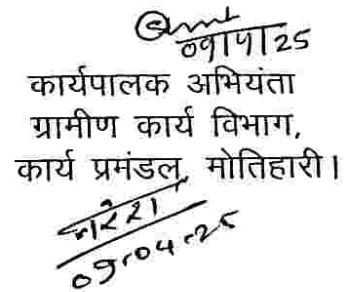 09/4/25
कार्यपालक अभियंता
ग्रामीण कार्य विभाग,
कार्य प्रमंडल, मोतिहारी।
नरेश
09-04-25